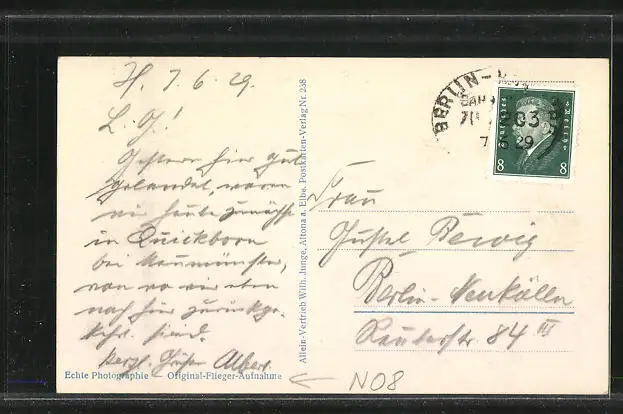 H. 7.6.29.
L. G.!
Gestern hier gut
gelandet, waren
wir heute zunächst
in Quickborn
bei Neumünster,
von wo wir eben
nach hier zurückge-
kehrt sind.
Herzl. Grüße Albert.
Echte Photographie — Original-Flieger-Aufnahme
N08
Allein-Vertrieb Wilh. Junge, Altona a. Elbe. Postkarten-Verlag Nr. 238
BERLIN-
BAHN
203
7 6 29
Deutsches Reich
8 8
Frau
Gustel
Berlin-Neukölln
84 III